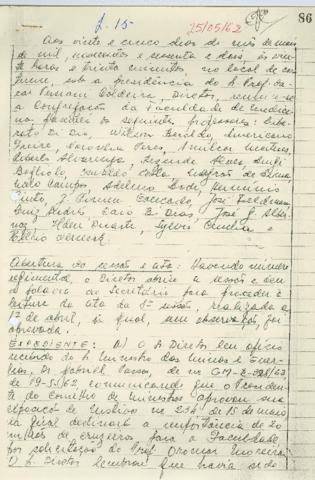 f. 15
25/05/62
86
Aos vinte e cinco dias do mês de maio
de mil, novecentos e sessenta e dois, às
horas e trinta minutos, no local de cos-
tume, sob a presidência do Prof. Os-
car Versiani Caldeira, Diretor, reuniu-se
a Congregação da Faculdade de Medicina
presentes os seguintes professores: Libe-
rato Di Dio, Wilson Beraldo, Americano
Freire, Amilcar Martins,
Alvarenga, Rezende Alves, Luigi
Bogliolo, Oswaldo Costa,
Campos, Adelmo Lodi, Hermínio
Pinto, J. Pinheiro Cançado, José Feldman,
Luiz Andrés, Caio B. Dias, José
Duarte, Sylvio Cunha e
Hélcio Werneck.
Abertura da sessão e ata: Havendo número
regimental, o Diretor abriu a sessão e deu
a palavra ao Secretário para proceder à
leitura da ata da sessão, realizada a
12 de abril, a qual, sem observação, foi
aprovada.
EXPEDIENTE: O Sr. Diretor leu ofício
recebido do Sr. Ministro das Minas e Ener-
gia, Dr. Gabriel Passos, de nº
de 19-5-62, comunicando que o Presiden-
te do Conselho de Ministros aprovou sua
exposição de motivos nº 234 de 15 de maio
na qual destinara a importância de 20
milhões de cruzeiros para a Faculdade,
por solicitação do Prof. Oromar Moreira.
O Sr. Diretor lembrou que havia sido